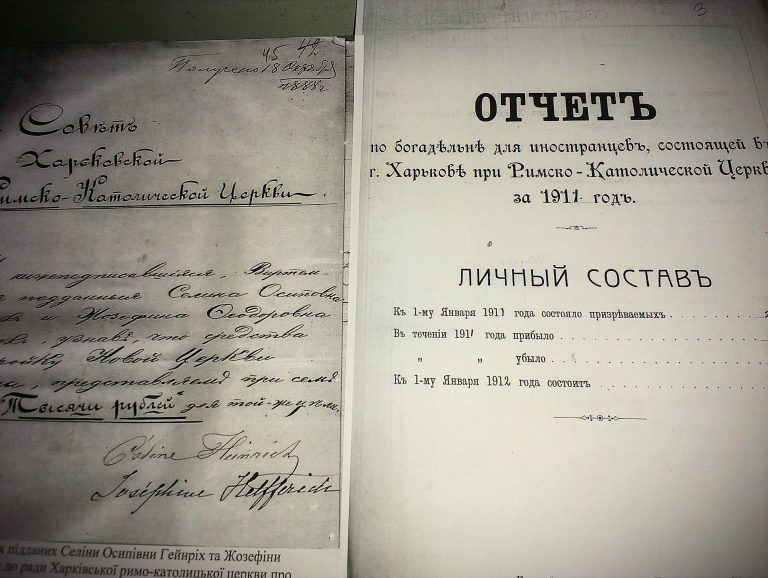 42.
45
Получено 18 Октября
1888 г.
Совѣтъ
Харьковской
Римско-Католической Церкви.
нижеподписавшіяся, Виртем-
подданныя Селина Осиповна
и Жозефина Ѳеодоровна
узнавъ, что средства
Новой Церкви
представляемъ при семъ
Тысячи рублей" для той-же цѣли.
Céline Heinrich
Joséphine Helfferich
підданих Селіни Осипівни Гейнріх та Жозефіни
до ради Харківської римо-католицької церкви про
3
ОТЧЕТЪ
по богадѣльнѣ для иностранцевъ, состоящей въ
г. Харьковѣ при Римско-Католической Церкв
за 1911 годъ.
ЛИЧНЫЙ СОСТАВЪ
Къ 1-му Января 1911 года состояло призрѣваемых
Въ теченіи 1911 года прибыло
„ „ убыло
Къ 1-му Января 1912 года состоитъ